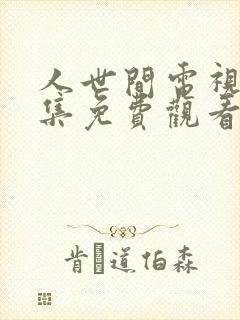 人世間電視
集免費觀看
肯道伯森